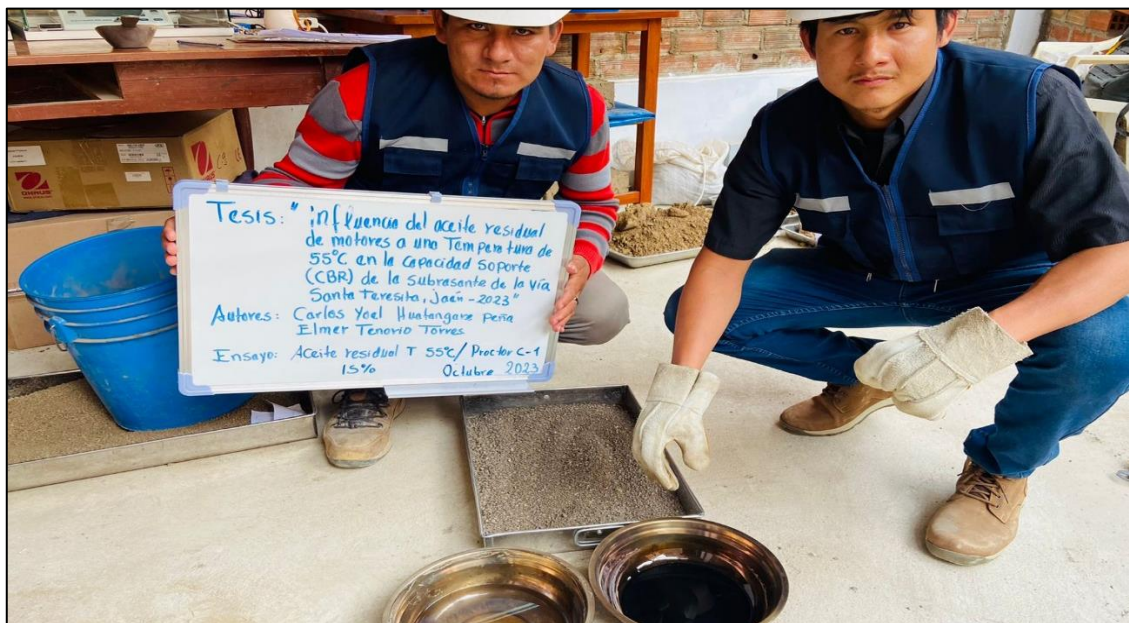 Tesis: "influencia del aceite residual
de motores a una Temperatura de
55°C en la Capacidad Soporte
(CBR) de la Subrasante de la Vía
Santa Teresita, Jaén - 2023"
Autores: Carlos Yoel Huatangare Peña
Elmer Tenorio Torres
Ensayo: Aceite residual T 55°C / Proctor C-1
15% Octubre 2023
OHAUS